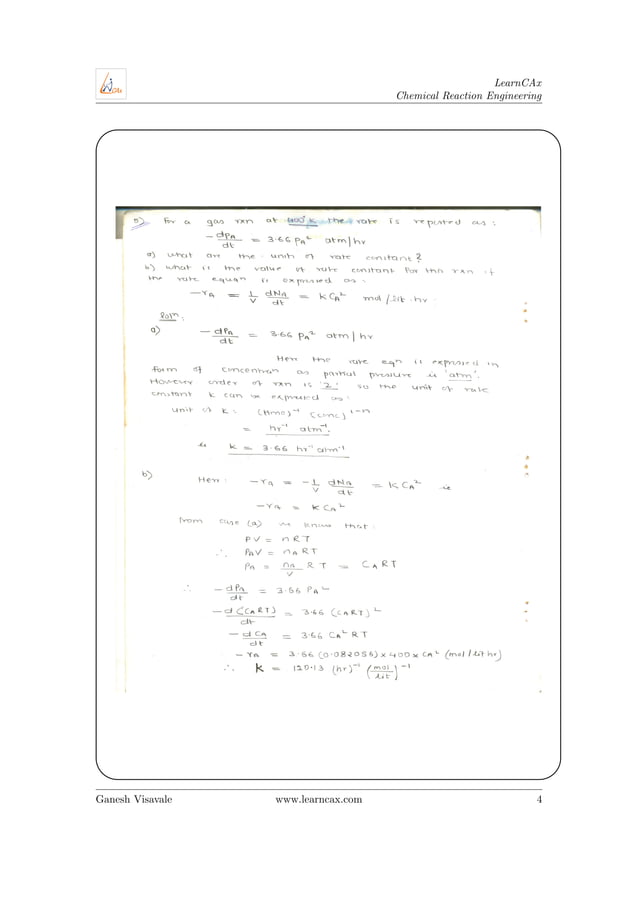 LearnCAx
Chemical Reaction Engineering
5) For a gas rxn at 400°K the rate is reported as:
-dPA/dt = 3.66 PA² atm/hr
a) what are the units of rate constant?
b) what is the value of rate constant for this rxn if
the rate equn is expressed as:
-rA = 1/V dNA/dt = kCA² mol/lit.hr.
Soln:
a) -dPA/dt = 3.66 PA² atm/hr
Here the rate eqn is expressed in
form of concentration as partial pressure is 'atm'.
However order of rxn is '2' so the unit of rate
constant k can be expressed as:
unit of k: (time)⁻¹ (conc)¹⁻ⁿ
= hr⁻¹ atm⁻¹.
ie k = 3.66 hr⁻¹ atm⁻¹
b) Here: -rA = -1/V dNA/dt = kCA² ie
-rA = kCA²
from case (a) we know that:
PV = nRT
∴ PAV = nART
PA = nA/V RT = CART
∴ -dPA/dt = 3.66 PA²
-d(CART)/dt = 3.66 (CART)²
-dCA/dt = 3.66 CA² RT
-rA = 3.66 (0.082056) x 400 x CA² (mol/lit hr)
∴ k = 120.13 (hr)⁻¹ (mol/lit)⁻¹
Ganesh Visavale www.learncax.com 4